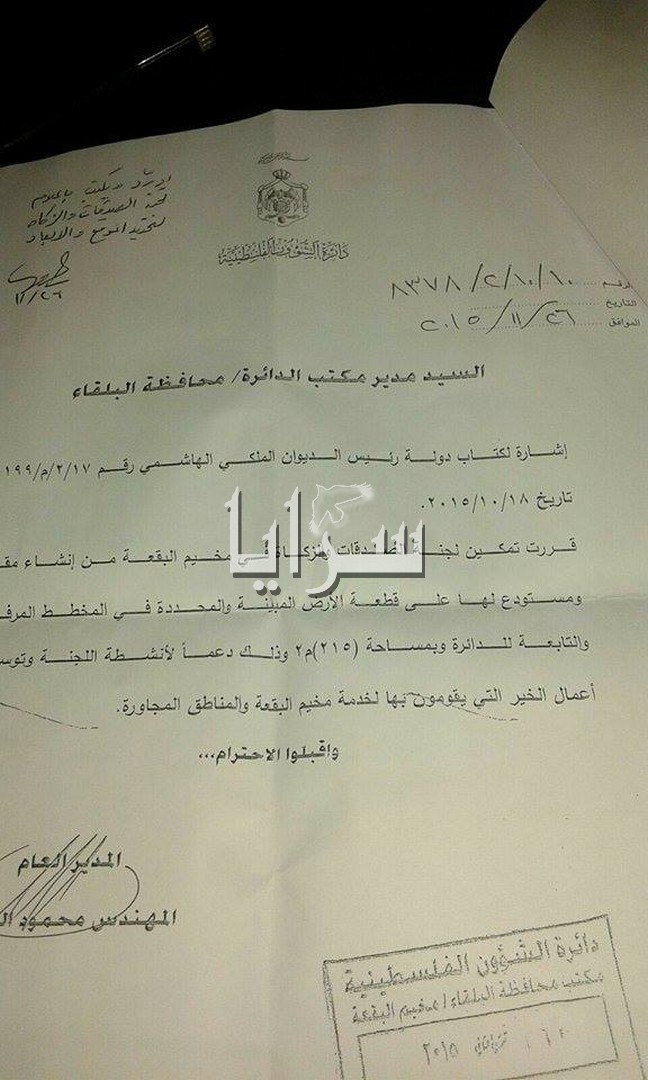 دائرة الشؤون الفلسطينية
لجنة الصدقات والزكاة
١١/٢٦
الرقم ٨٣٧٨/٢/١٠/١٠
التاريخ
الموافق ٢٠١٥/١١/٢٦
السيد مدير مكتب الدائرة/ محافظة البلقاء
إشارة لكتاب دولة رئيس الديوان الملكي الهاشمي رقم ١٩٩/م/٢/١٧
تاريخ ٢٠١٥/١٠/١٨.
سرايا
قررت تمكين لجنة الصدقات والزكاة في مخيم البقعة من إنشاء
ومستودع لها على قطعة الأرض المبينة والمحددة في المخطط
والتابعة للدائرة وبمساحة (٢١٥)م٢ وذلك دعماً لأنشطة اللجنة
أعمال الخير التي يقومون بها لخدمة مخيم البقعة والمناطق المجاورة.
واقبلوا الاحترام...
المدير العام
المهندس محمود
دائرة الشؤون الفلسطينية
مكتب محافظة البلقاء/ مخيم البقعة
٢٠١٥